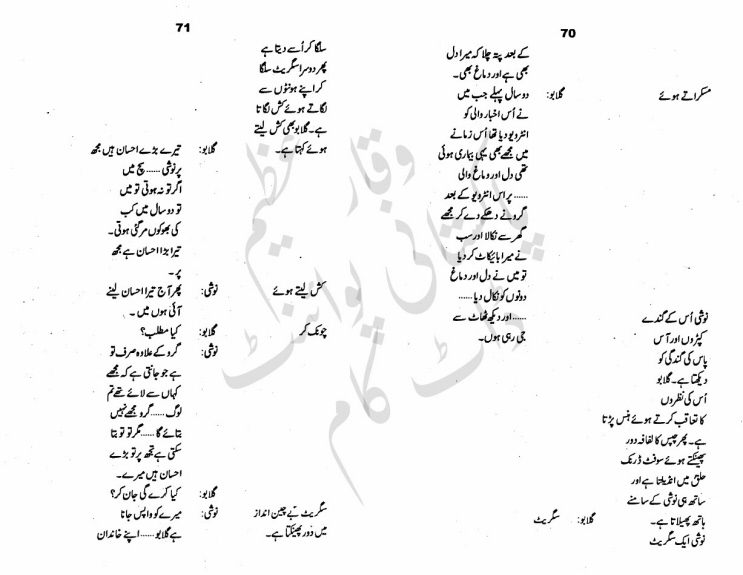 70
کے بعد پتہ چلا کہ میرا دل
بھی ہے اور دماغ بھی۔
مسکراتے ہوئے گلابو: دو سال پہلے جب میں
نے اُس اخبار والی کو
انٹرویو دیا تھا اُس زمانے
میں مجھے بھی یہی بیماری ہوئی
تھی دل اور دماغ والی
...... پر اس انٹرویو کے بعد
گرو نے دھکے دے کر مجھے
گھر سے نکالا اور سب
نے میرا بائیکاٹ کر دیا
تو میں نے دل اور دماغ
دونوں کو نکال دیا ......
...... اور دیکھ ٹھاٹ سے
جی رہی ہوں۔
نوشی اُس کے گندے
کپڑوں اور آس
پاس کی گندگی کو
دیکھتا ہے۔ گلابو
اُس کی نظروں
کا تعاقب کرتے ہوئے ہنس پڑتا
ہے۔ پھر چپس کا لفافہ دور
پھینکتے ہوئے سوفٹ ڈرنک
حلق میں انڈیلتا ہے اور
ساتھ ہی نوشی کے سامنے
ہاتھ پھیلاتا ہے۔ گلابو: سگریٹ
نوشی ایک سگریٹ
71
سلگا کر اُسے دیتا ہے
پھر دوسرا سگریٹ سلگا
کر اپنے ہونٹوں سے
لگاتے ہوئے کش لگاتا
ہے۔ گلابو بھی کش لیتے
ہوئے کہتا ہے۔ گلابو: تیرے بڑے احسان ہیں مجھ
پر نوشی ...... سچ میں
اگر تو نہ ہوتی تو میں
تو دو سال میں کب
کی بھوکوں مر گئی ہوتی۔
تیرا بڑا احسان ہے مجھ
پر۔
کش لیتے ہوئے نوشی: پھر آج تیرا احسان لینے
آئی ہوں میں۔
چونک کر گلابو: کیا مطلب؟
نوشی: گرو کے علاوہ صرف تو
ہے جو جانتی ہے کہ مجھے
کہاں سے لائے تھے تم
لوگ ...... گرو مجھے نہیں
بتائے گا ...... مگر تو تو بتا
سکتی ہے تجھ پر تو بڑے
احسان ہیں میرے۔
گلابو: کیا کرے گی جان کر؟
سگریٹ بے چین انداز نوشی: میرے کو واپس جانا
میں دور پھینکتا ہے۔ ہے گلابو ...... اپنے خاندان
وقار عظیم
پاکستانی پوائنٹ
ڈاٹ کام